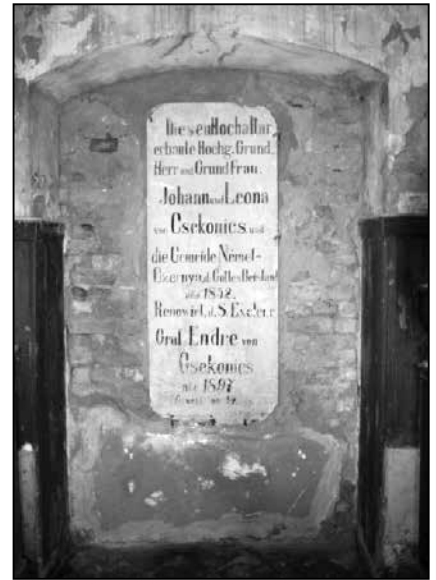 Diesen Hochaltar
erbaute Hochg. Grund
Herr und Grund Frau.
Johann und Leona
von Csekonics und
die Gemeide Német-
Czernya, d. Gottes
1842.
Renowiel, d. S.
Graf Endre von
Csekonics
1897